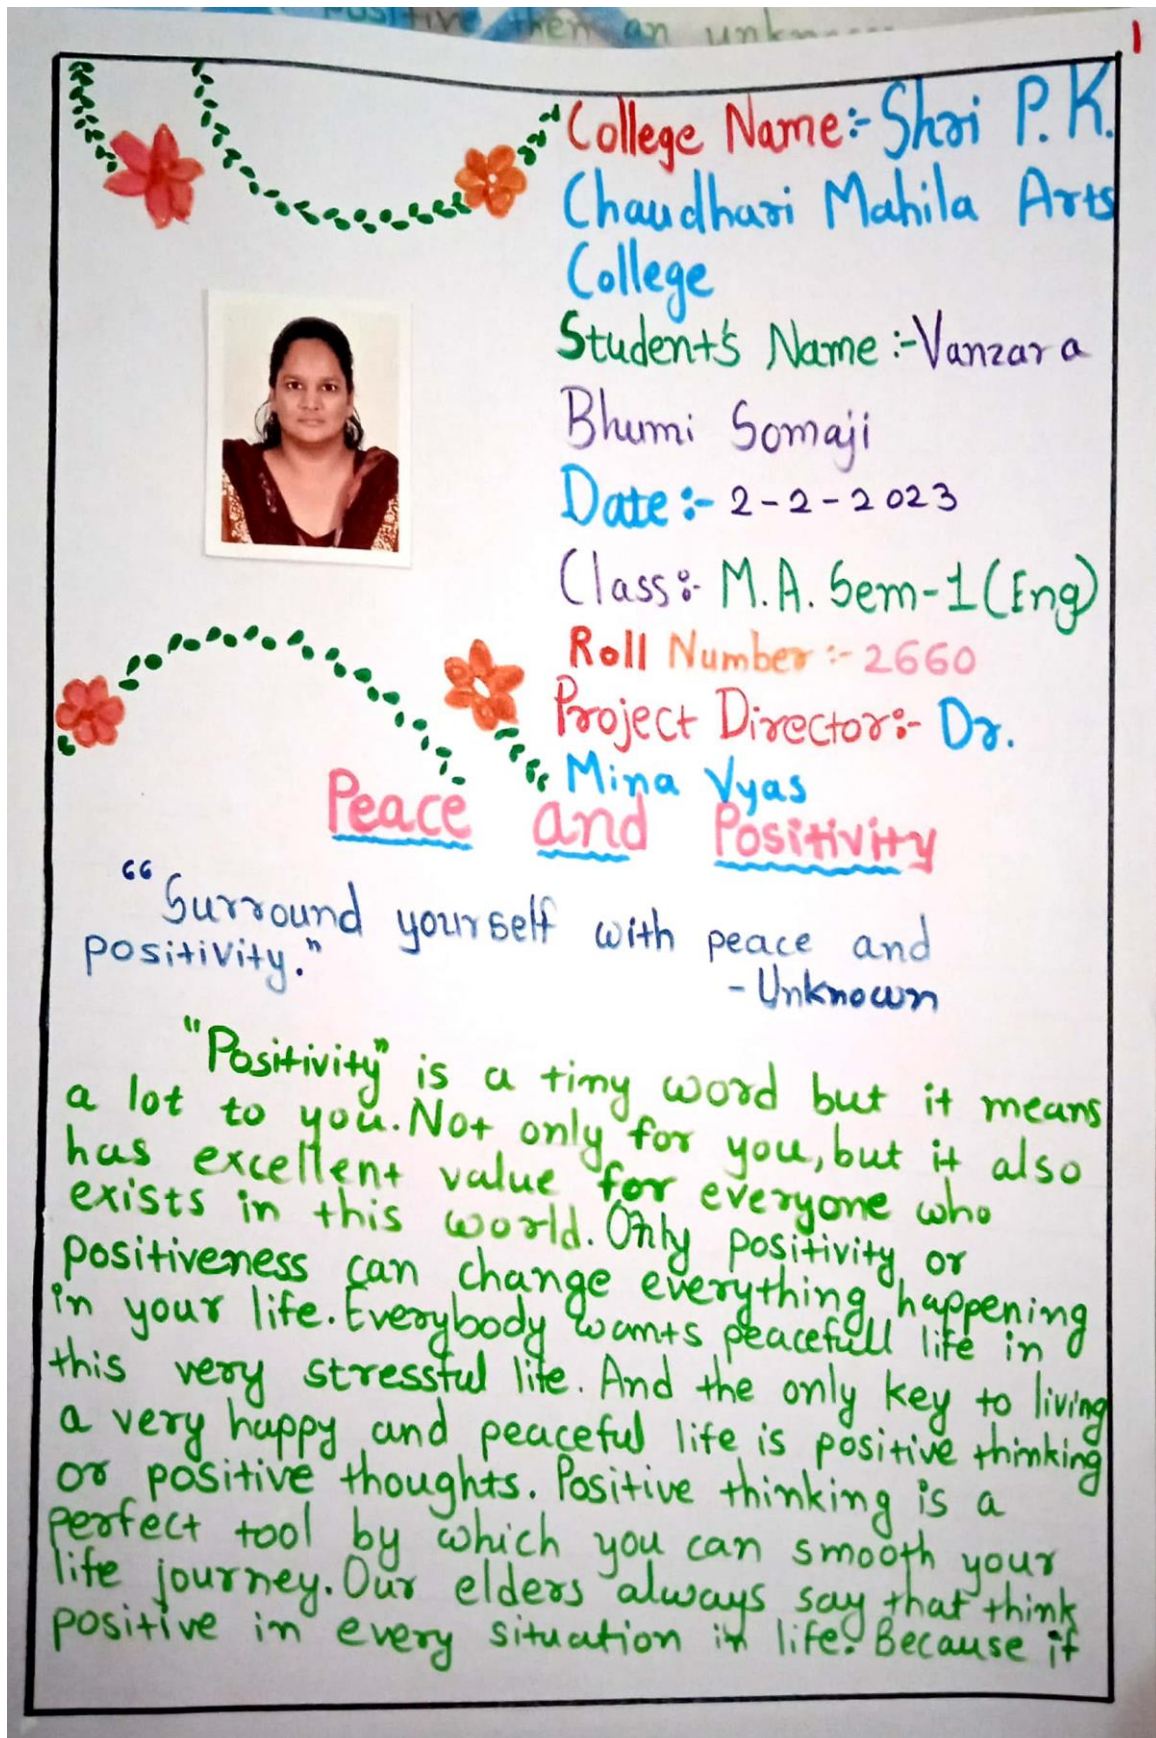 positive then an
1
College Name:- Shri P. K.
Chaudhari Mahila Arts
College
Student's Name :- Vanzara
Bhumi Somaji
Date :- 2-2-2023
Class:- M.A. Sem-1 (Eng)
Roll Number :- 2660
Project Director:- Dr.
Mina Vyas
Peace and Positivity
"Surround yourself with peace and
positivity."
- Unknown
"Positivity" is a tiny word but it means
a lot to you. Not only for you, but it also
has excellent value for everyone who
exists in this world. Only positivity or
positiveness can change everything happening
in your life. Everybody wants peacefull life in
this very stressful life. And the only key to living
a very happy and peaceful life is positive thinking
or positive thoughts. Positive thinking is a
perfect tool by which you can smooth your
life journey. Our elders always say that think
positive in every situation in life. Because if